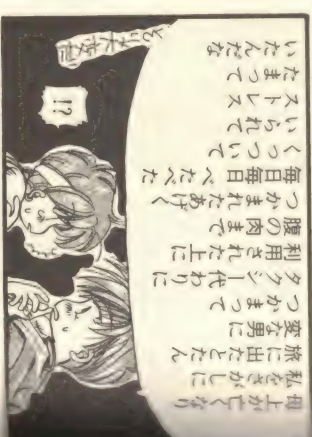 母上が亡くなり
私をさがしに
旅に出たとたん
変な男に
つかまって
タクシー代わりに
利用された上に
腹の肉まで
つかまれたあげく
毎日毎日べたべた
くっついて
いられて
ストレス
たまって
いたんだな
!?
とり大変だ